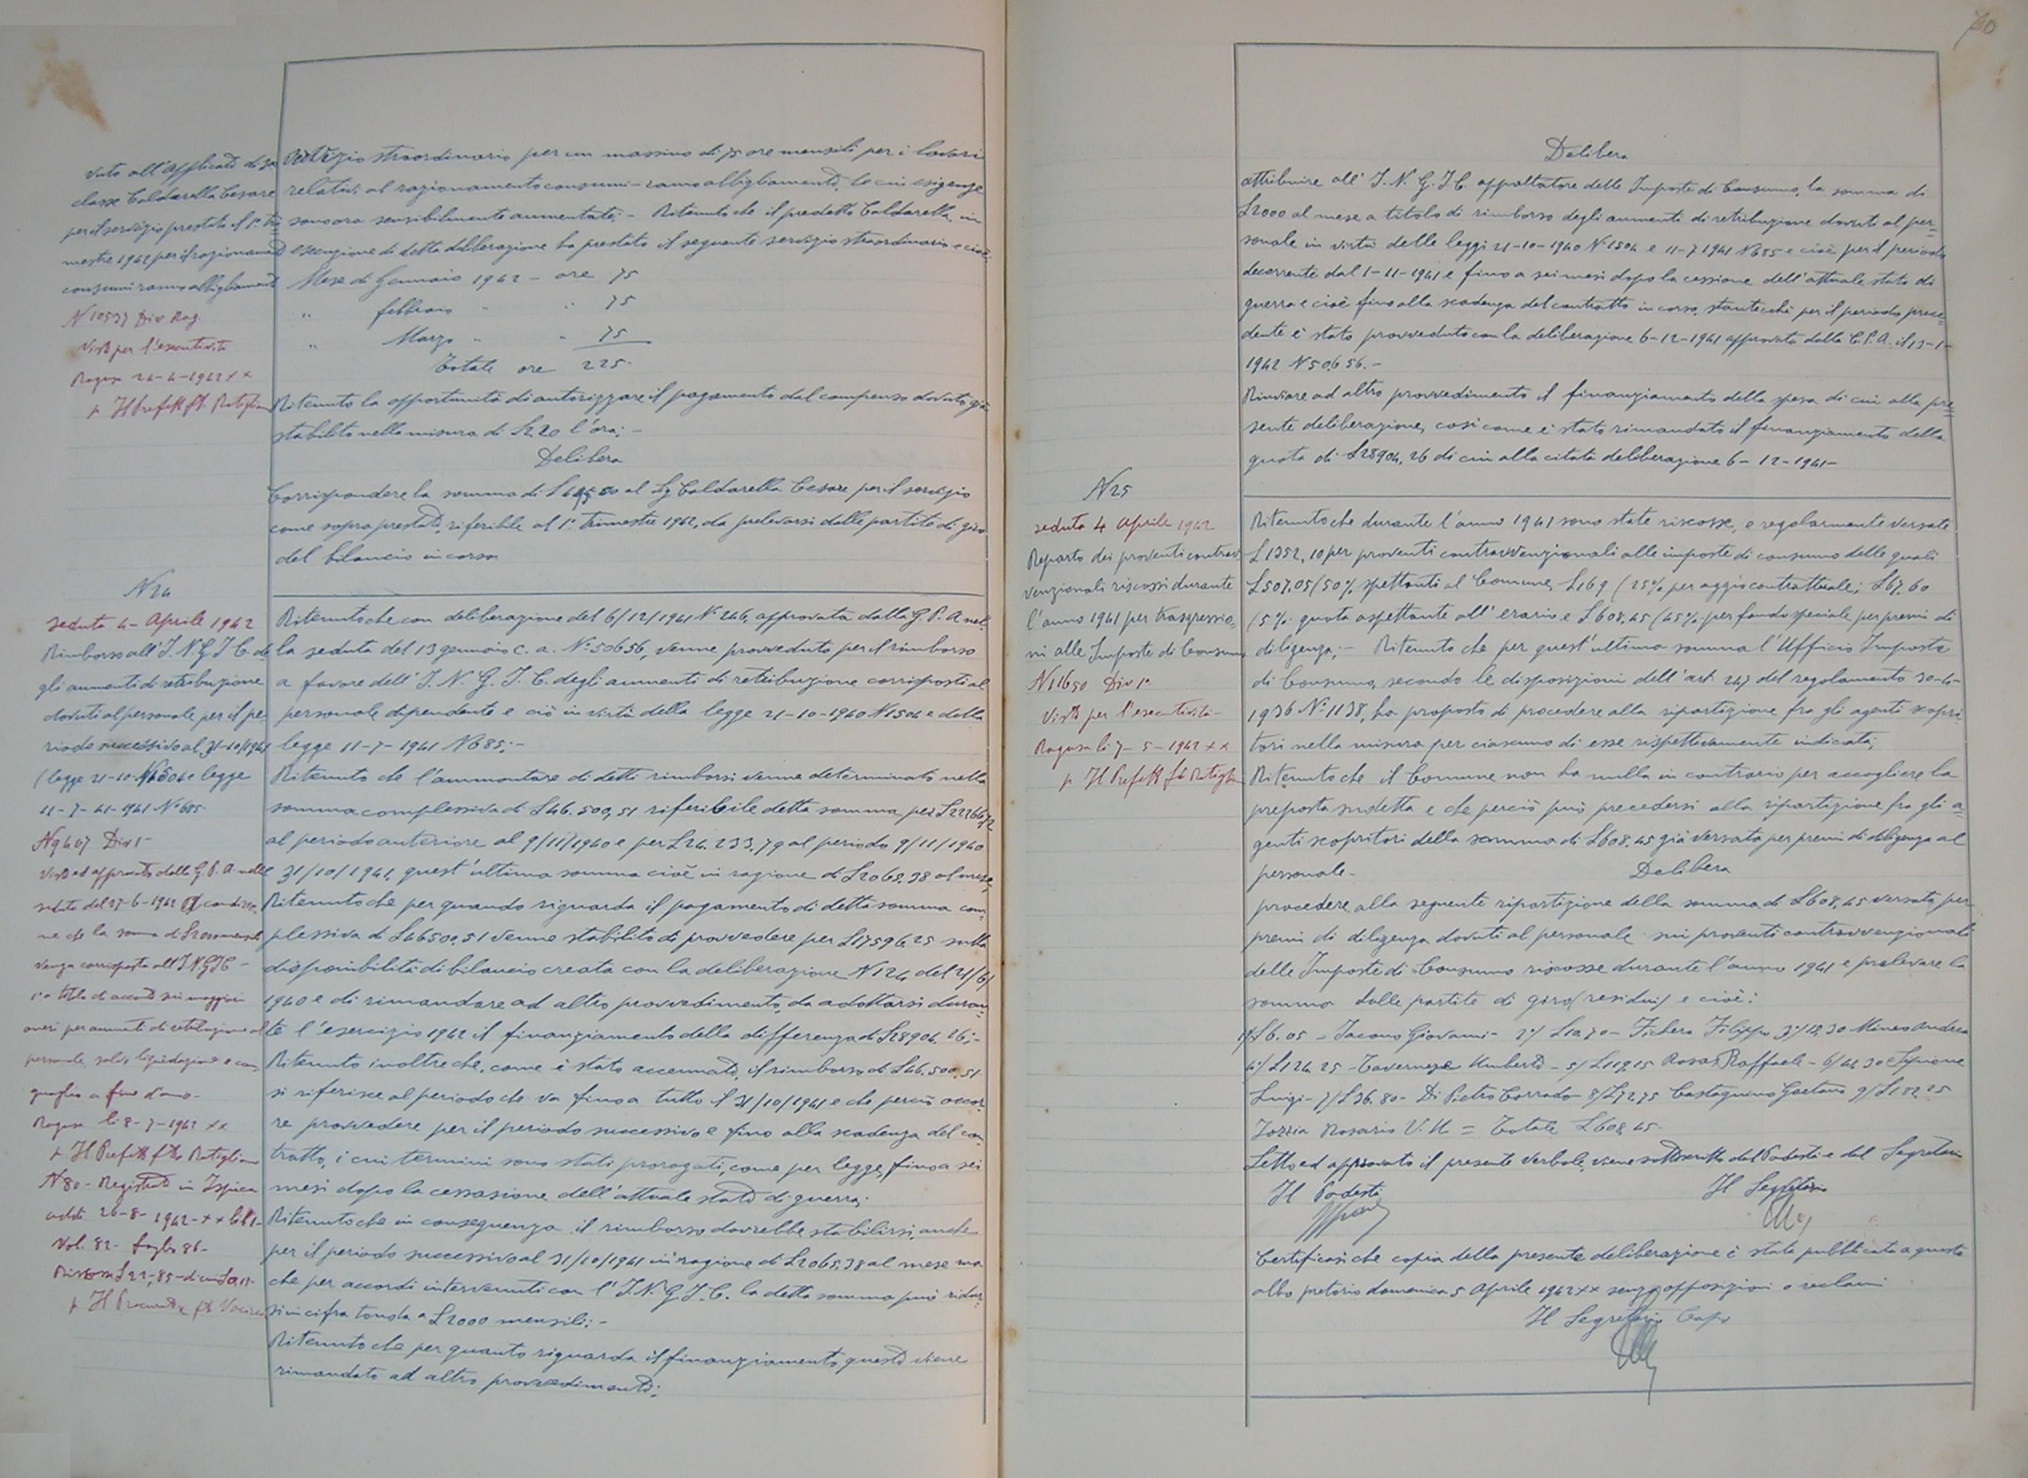 vuto all'applicato di 2a
classe Caldarella Cesare
per il servizio prestato il 1° tri
mestre 1942 per il razionamento
consumi ramo abbigliamento
N 10537 Div Rag.
Visto per l'esecutività
Ragusa 24-4-1942 XX
p Il Prefetto fto Ratiglia
servizio straordinario per un massimo di 75 ore mensili per i lavori
relativi al razionamento consumi - ramo abbigliamento, le cui esigenze
sono ora sensibilmente aumentate; - Ritenuto che il predetto Caldarella in
esecuzione di detta deliberazione ha prestato il seguente servizio straordinario e cioè:
Mese di Gennaio 1942 - ore 75
" febbraio " " 75
" Marzo " " 75
Totale ore 225.
Ritenuto la opportunità di autorizzare il pagamento del compenso dovuto già
stabilito nella misura di L 2,20 l'ora; -
Delibera
Corrispondere la somma di L al Sig Caldarella Cesare per il servizio
come sopra prestato, riferibile al 1° Trimestre 1942, da prelevarsi dalle partite di giro
del bilancio in corso
N 24
seduta 4 - Aprile 1942
Rimborso all'I.N.G.I.C. de
gli aumenti di retribuzione
dovuti al personale per il pe
riodo successivo al 31-10-1941
(legge 21-10- N 1504 e legge
11-7-41-941 N° 685
N 9407 Div 1-
Visto ed approvato dalla G.P.A. nella
seduta del 27-6-1942 a condizio
ne che la somma di L 2000 mensili
venga corrisposta all'I.N.G.I.C -
a titolo di acconto sui maggiori
oneri per aumenti di retribuzione al
personale, salvo liquidazione e con
guaglio a fine d'anno -
Ragusa li 8-7-1942 XX
p Il Prefetto fto Ratiglia
N 80 - Registrato in Ispica
addì 26-8-1942 - XX lib 1-
Vol. 82 - foglio 86 -
Riscosse L 22,85 - di cui
p Il Procuratore fto
Ritenuto che con deliberazione del 6/12/1941 N° 246, approvata dalla G.P.A nel-
la seduta del 13 gennaio c. a. N° 50656, venne provveduto per il rimborso
a favore dell'I.N.G.I.C. degli aumenti di retribuzione corrisposti al
personale dipendente e ciò in virtù della legge 21-10-1940 N 1504 e della
legge 11-7-1941 N 685; -
Ritenuto che l'ammontare di detti rimborsi venne determinato nella
somma complessiva di L 46.500,51 riferibile detta somma per L 22266,72
al periodo anteriore al 9/11/1940 e per L 24.233,79 al periodo 9/11/1940
e 31/10/1941, quest'ultima somma cioè in ragione di L 2065,38 al mese,
Ritenuto che per quando riguarda il pagamento di detta somma com-
plessiva di L 46500,51 venne stabilito di provvedere per L 17596,25 sulla
disponibilità di bilancio creata con la deliberazione N 124 del 21/6/
1940 e di rimandare ad altro provvedimento, da adottarsi duran-
te l'esercizio 1942 il finanziamento della differenza di L 28904,26; -
Ritenuto inoltre che, come è stato accennato, il rimborso di L 46.500,51
si riferisce al periodo che va fino a tutto il 31/10/1941 e che perciò occor-
re provvedere per il periodo successivo e fino alla scadenza del con-
tratto, i cui termini sono stati prorogati, come per legge, fino a sei
mesi dopo la cessazione dell'attuale stato di guerra;
Ritenuto che in conseguenza il rimborso dovrebbe stabilirsi, anche
per il periodo successivo al 31/10/1941 in ragione di L 2065,38 al mese ma
che per accordi intervenuti con l'I.N.G.I.C. la detta somma può ridur-
si in cifra tonda a L 2000 mensili; -
Ritenuto che per quanto riguarda il finanziamento, questo viene
rimandato ad altro provvedimento;
Delibera
attribuire all'I.N.G.I.C. appaltatore delle Imposte di Consumo, la somma di
L 2000 al mese a titolo di rimborso degli aumenti di retribuzione dovuti al per-
sonale in virtù delle leggi 21-10-1940 N 1504 e 11-7-1941 N 685 e cioè per il periodo
decorrente dal 1-11-1941 e fino a sei mesi dopo la cessione dell'attuale stato di
guerra e cioè fino alla scadenza del contratto in corso, stantechè per il periodo prece-
dente è stato provveduto con la deliberazione 6-12-1941 approvata dalla G.P.A. il 13-1-
1942 N 50656. -
Rinviare ad altro provvedimento il finanziamento della spesa di cui alla pre-
sente deliberazione, così come è stato rimandato il finanziamento della
quota di L 28904,26 di cui alla citata deliberazione 6-12-1941 -
N 25
seduta 4 Aprile 1942
Reparto dei proventi contrav
venzionali riscossi durante
l'anno 1941 per trasgressio-
ni alle Imposte di Consumo
N 11650 Div 1a
Visto per l'esecutività -
Ragusa li 7-5-1942 XX
p Il Prefetto fto Ratiglia
Ritenuto che durante l'anno 1941 sono state riscosse, e regolarmente versate
L 1352,10 per proventi contravvenzionali alle imposte di consumo delle quali
L 507,05 (50% spettanti al Comune, L 169 (25% per aggio contrattuale; L 67,60
(5% quota aspettante all'erario e L 608,45 (45% per fondo speciale per premi di
diligenza; - Ritenuto che per quest'ultima somma l'Ufficio Imposte
di Consumo, secondo le disposizioni dell'art. 247 del regolamento 30-4-
1936 N° 1138, ha proposto di procedere alla ripartizione fra gli agenti scopri-
tori nella misura per ciascuno di esse rispettivamente indicati;
Ritenuto che il Comune non ha nulla in contrario per accogliere la
proposta sudetta e che perciò può precedersi alla ripartizione fra gli a-
genti scopritori della somma di L 608,45 già versata per premi di diligenza al
personale -
Delibera
procedere alla seguente ripartizione della somma di L 608,45 versata per
premi di diligenza dovuti al personale sui proventi contravvenzionali
delle Imposte di Consumo riscosse durante l'anno 1941 e prelevare la
somma dalle partite di giro (residui) e cioè:
1°/ L 6.05 - Iacono Giovanni - 2°/ L 10,70 - Fichera Filippo 3°/ 12,30 Mineo Andrea
4°/ L 124,25 - Tavernese Umberto - 5/ L 117,15 Rosa Raffaele - 6/ 44,30 Scifrione
Luigi - 7/ L 36.80 - Di Pietro Corrado - 8/ L 72,75 Castagnino Gaetano 9/ L 182,25
Iozzia Rosario V.U. = Totale L 608,45.
Letto ed approvato il presente verbale, viene sottoscritto dal Podestà e dal Segretario
Il Podestà
Il Segretario
Certificasi che copia della presente deliberazione è stata pubblicata a questo
albo pretorio domenica 5 Aprile 1942 XX senza opposizioni o reclami
Il Segretario Capo